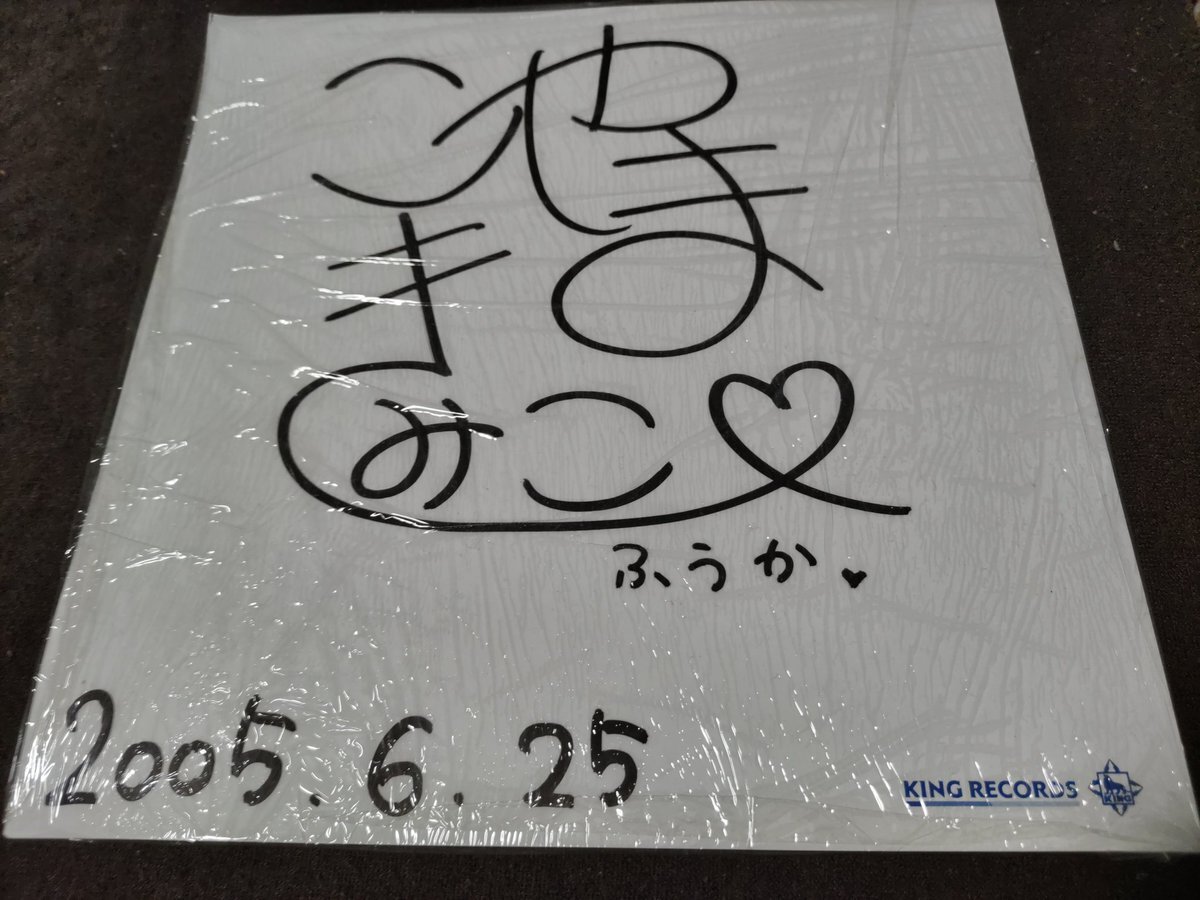 こやま
きみこ♡
ふうか♥
2005.6.25
KING RECORDS
KING